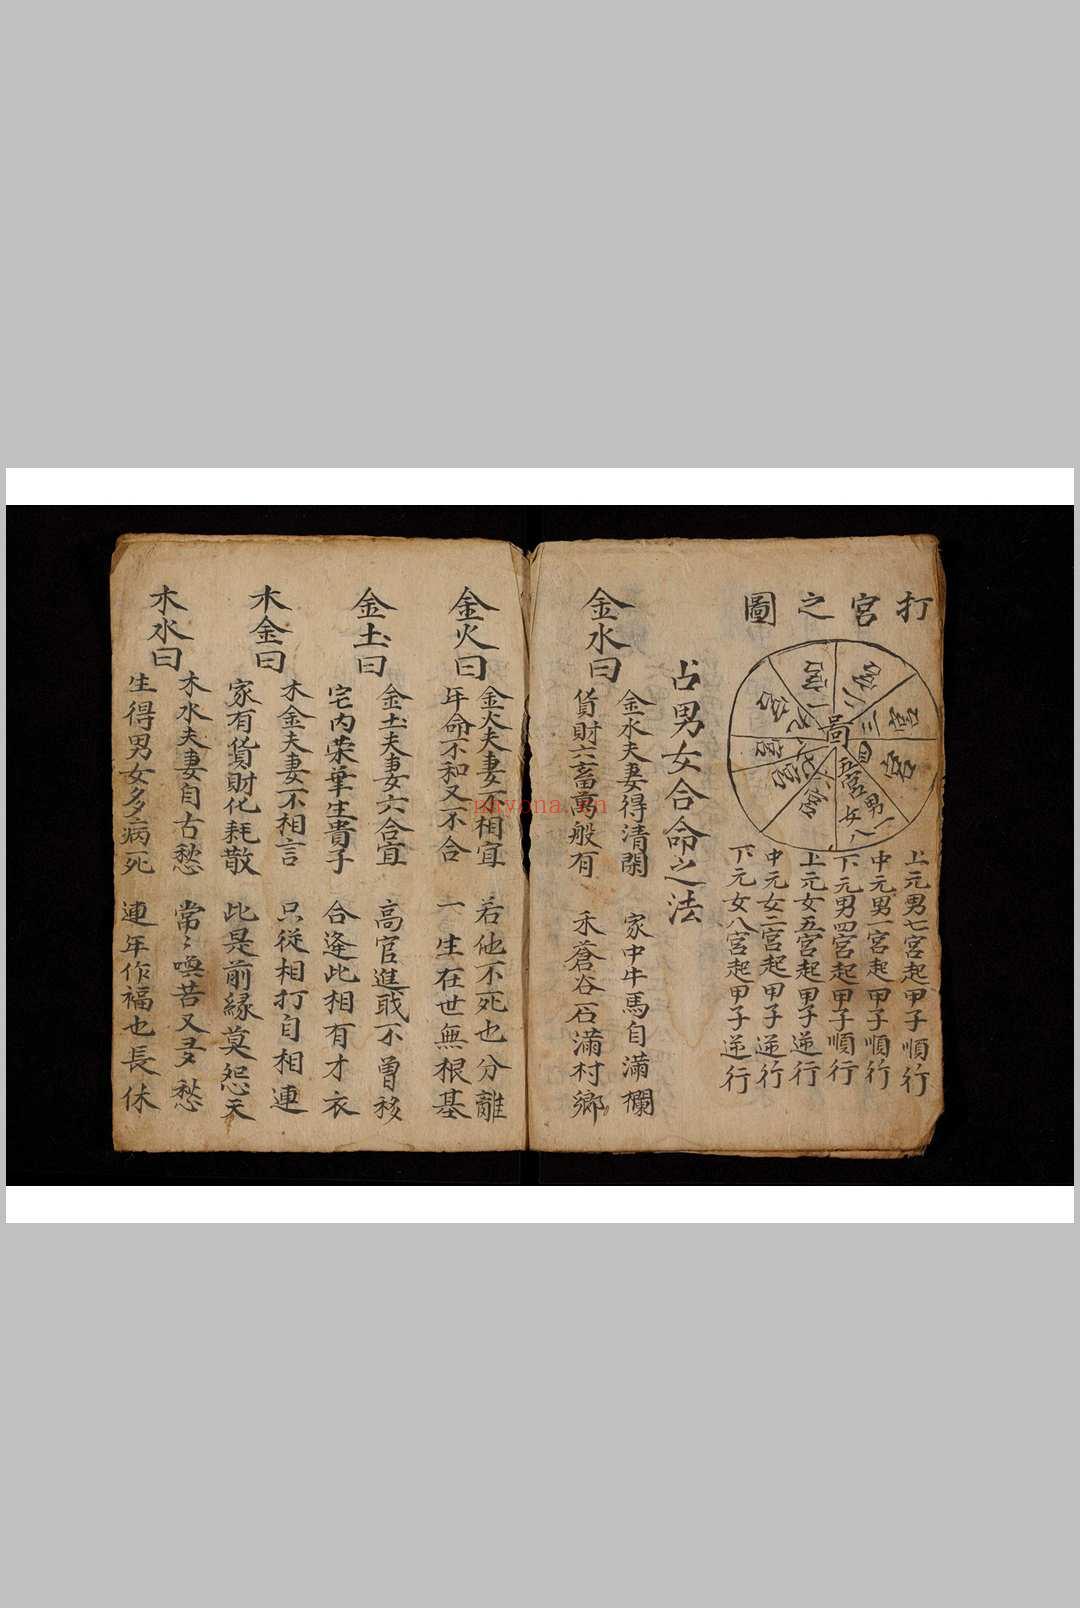 打宮之圖
圖
一宮
二宮
三宮
四宮
五宮
六宮
七宮
八宮
九宮
男一
女八
上元男七宮起甲子順行
中元男一宮起甲子順行
下元男四宮起甲子順行
上元女五宮起甲子逆行
中元女二宮起甲子逆行
下元女八宮起甲子逆行
占男女合命之法
金水曰
金水夫妻得清閑 家中牛馬自滿欄
貨財六畜萬般有 禾蒼谷石滿村鄉
金火曰
金火夫妻不相宜 若他不死也分離
年命不和又不合 一生在世無根基
金土曰
金土夫妻六合宜 高官進戝不曾移
宅内荣華生貴子 合逢此相有才衣
木金曰
木金夫妻不相言 只従相打自相連
家有貨財化耗散 此是前緣莫怨天
木水曰
木水夫妻自古愁 常〻嘆苦又多愁
生得男女多病死 連年作福也長休